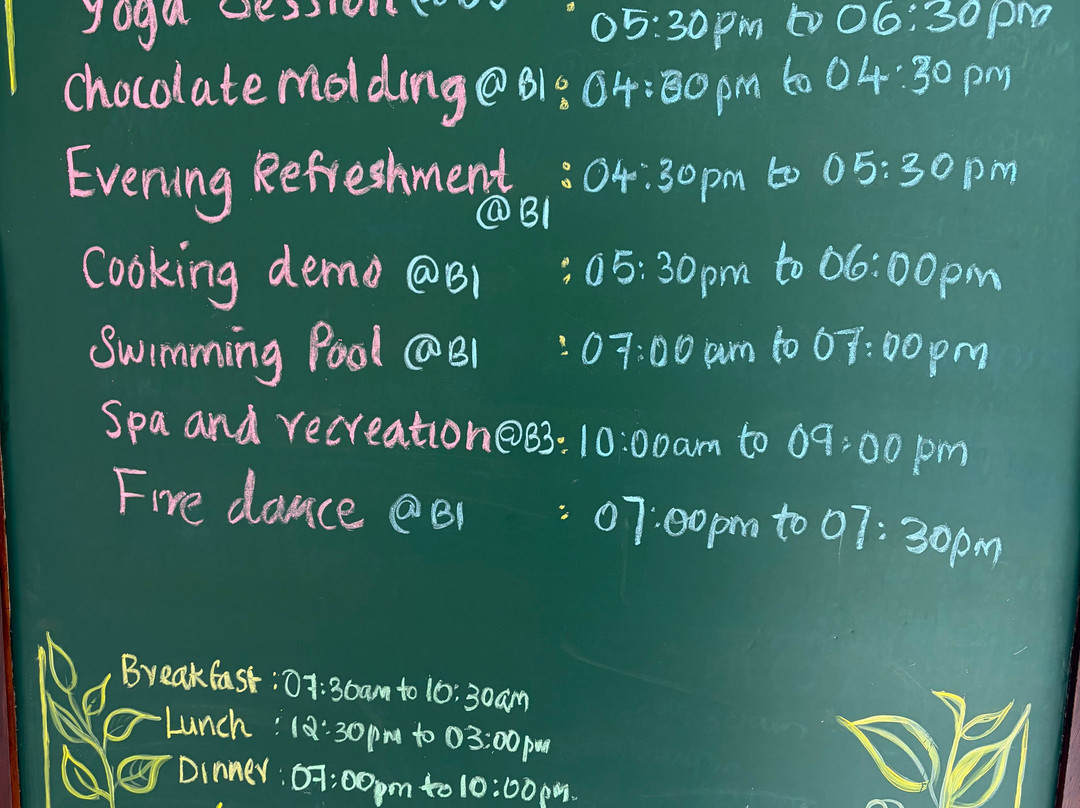 Yoga Session
05:30pm to 06:30pm
chocolate Molding @ B1 : 04:00pm to 04:30pm
Evening Refreshment : 04:30pm to 05:30pm
@ B1
Cooking demo @B1 : 05:30pm to 06:00pm
Swimming Pool @B1 : 07:00am to 07:00pm
Spa and recreation @B3 : 10:00am to 09:00pm
Fire dance @B1 : 07:00pm to 07:30pm
Breakfast : 07:30am to 10:30am
Lunch : 12:30pm to 03:00pm
Dinner : 07:00pm to 10:00pm